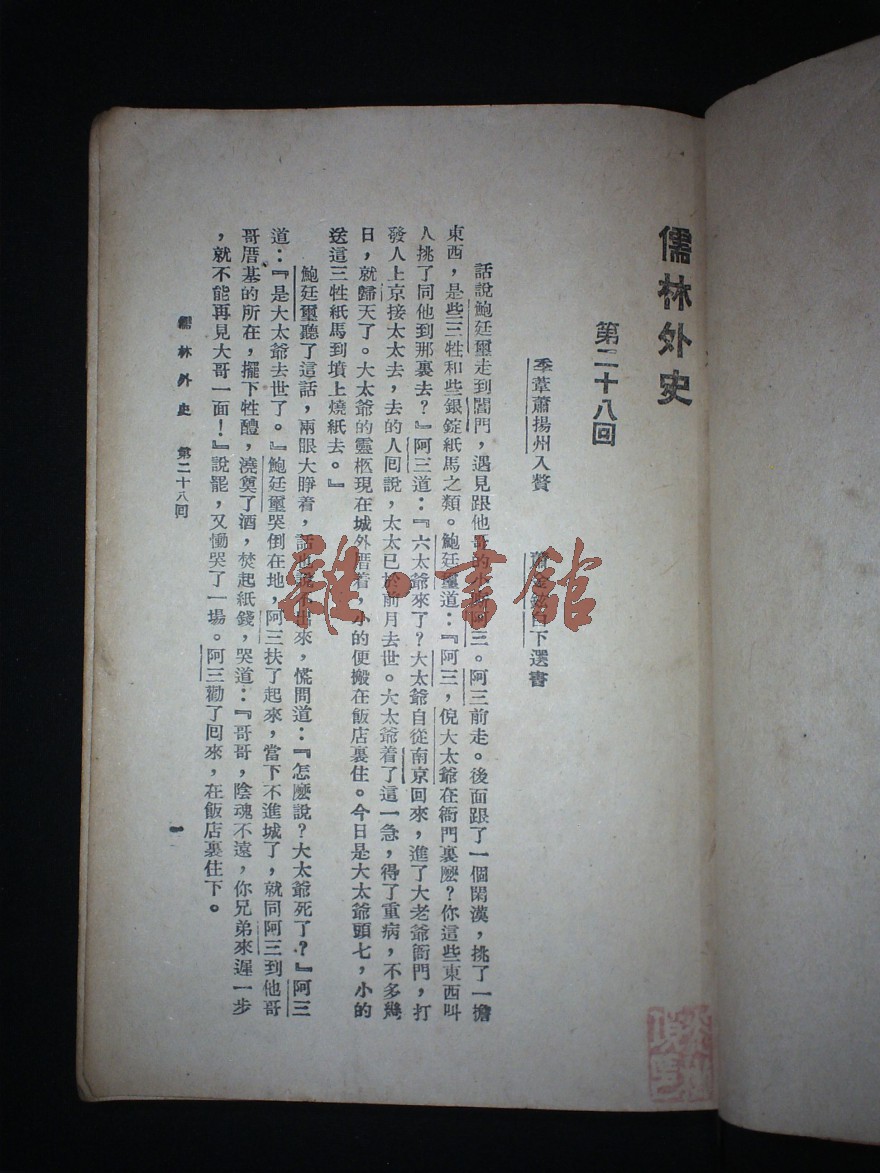 儒林外史
第二十八回
季葦蕭揚州入贅　蕭金鉉白下選書
話說鮑廷璽走到閶門，遇見跟他哥的小廝阿三。阿三前走。後面跟了一個閑漢，挑了一擔
東西，是些三牲和些銀錠紙馬之類。鮑廷璽道：『阿三，倪大太爺在衙門裏麽？你這些東西叫
人挑了同他到那裏去？』阿三道：『六太爺來了？大太爺自從南京回來，進了大老爺衙門，打
發人上京接太太去，去的人回說，太太已於前月去世。大太爺着了這一急，得了重病，不多幾
日，就歸天了。大太爺的靈柩現在城外厝着，小的便搬在飯店裏住。今日是大太爺頭七，小的
送這三牲紙馬到墳上燒紙去。』
鮑廷璽聽了這話，兩眼大睜着，話也說不出來，慌問道：『怎麽說？大太爺死了？』阿三
道：『是大太爺去世了。』鮑廷璽哭倒在地，阿三扶了起來，當下不進城了，就同阿三到他哥
哥厝基的所在，擺下牲醴，澆奠了酒，焚起紙錢，哭道：『哥哥，陰魂不遠，你兄弟來遲一步
，就不能再見大哥一面！』說罷，又慟哭了一場。阿三勸了回來，在飯店裏住下。
儒林外史　第二十八回
一
雜·書館